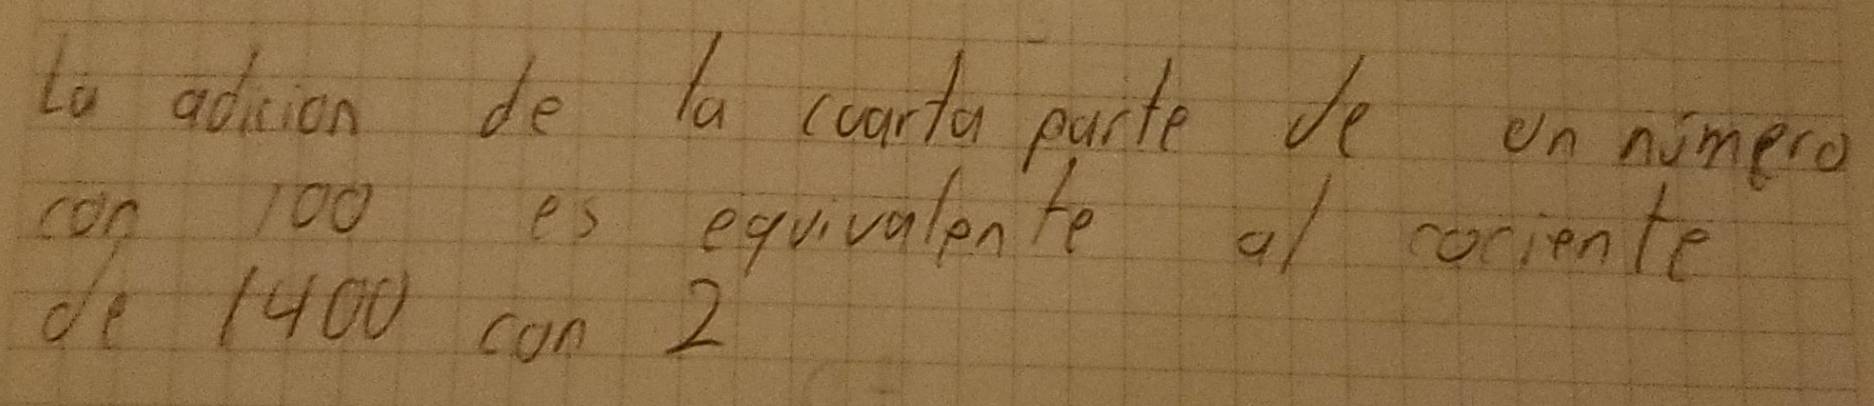 La adicion de la cuarta parte de un número
con 100 es equivalente al cociente
de 1400 con 2